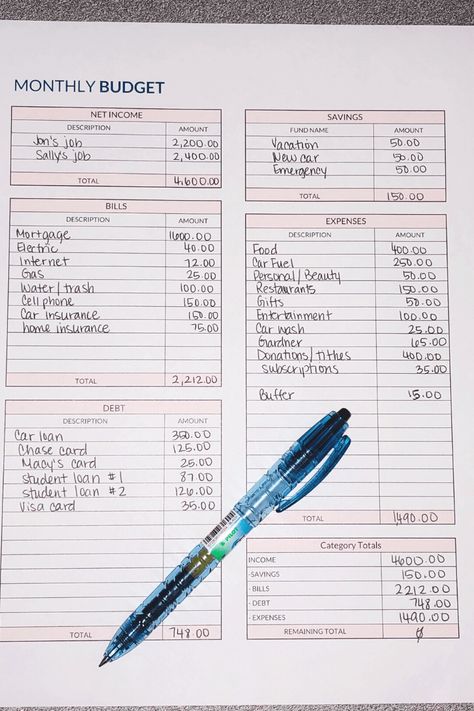 MONTHLY BUDGET
NET INCOME
DESCRIPTION AMOUNT
Jon's job 2,200.00
Sally's job 2,400.00
TOTAL 4,600.00
BILLS
DESCRIPTION AMOUNT
Mortgage 1600.00
Electric 40.00
Internet 72.00
Gas 25.00
Water/trash 100.00
Cell phone 150.00
Car insurance 150.00
home insurance 75.00
TOTAL 2,212.00
DEBT
DESCRIPTION AMOUNT
Car loan 350.00
Chase card 125.00
Macy's card 25.00
student loan #1 87.00
student loan #2 126.00
Visa card 35.00
TOTAL 748.00
SAVINGS
FUND NAME AMOUNT
Vacation 50.00
New car 50.00
Emergency 50.00
TOTAL 150.00
EXPENSES
DESCRIPTION AMOUNT
Food 400.00
Car Fuel 250.00
Personal/Beauty 50.00
Restaurants 150.00
Gifts 50.00
Entertainment 100.00
Car wash 25.00
Gardner 65.00
Donations/tithes 400.00
Subscriptions 35.00
Buffer 15.00
TOTAL 1490.00
Category Totals
INCOME 4600.00
- SAVINGS 150.00
- BILLS 2212.00
- DEBT 748.00
- EXPENSES 1490.00
REMAINING TOTAL 0
PILOT